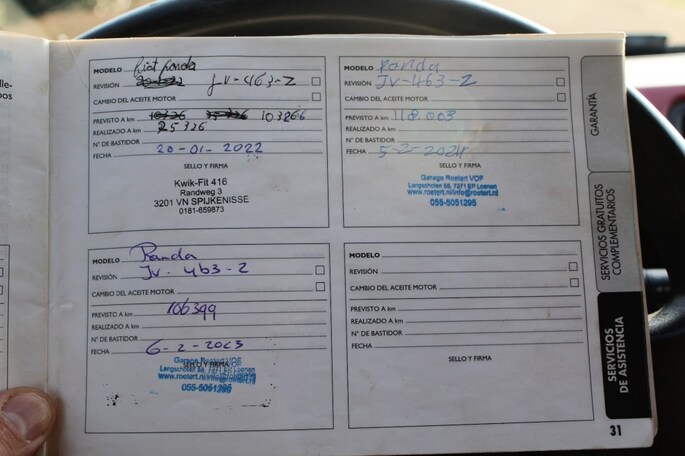 MODELO Fiat Panda
REVISIÓN JV-463-Z
CAMBIO DEL ACEITE MOTOR
PREVISTO A km 103266
REALIZADO A km 25326
N° DE BASTIDOR
FECHA 20-01-2022
SELLO Y FIRMA
Kwik-Fit 416
Randweg 3
3201 VN SPIJKENISSE
0181-659873
MODELO Panda
REVISIÓN JV-463-Z
CAMBIO DEL ACEITE MOTOR
PREVISTO A km 118.003
REALIZADO A km
N° DE BASTIDOR
FECHA 5-2-2024
SELLO Y FIRMA
Garage Rostert VOF
Langschoten 56, 7371 EP Loenen
www.rostert.nl/info@rostert.nl
055-5051295
MODELO Panda
REVISIÓN JV-463-Z
CAMBIO DEL ACEITE MOTOR
PREVISTO A km 106399
REALIZADO A km
N° DE BASTIDOR
FECHA 6-2-2023
SELLO Y FIRMA
Garage Rostert VOF
Langschoten 56, Loenen
www.rostert.nl/info@rostert.nl
055-5051295
MODELO
REVISIÓN
CAMBIO DEL ACEITE MOTOR
PREVISTO A km
REALIZADO A km
N° DE BASTIDOR
FECHA
SELLO Y FIRMA
GARANTÍA
SERVICIOS GRATUITOS
COMPLEMENTARIOS
SERVICIOS
DE ASISTENCIA
31